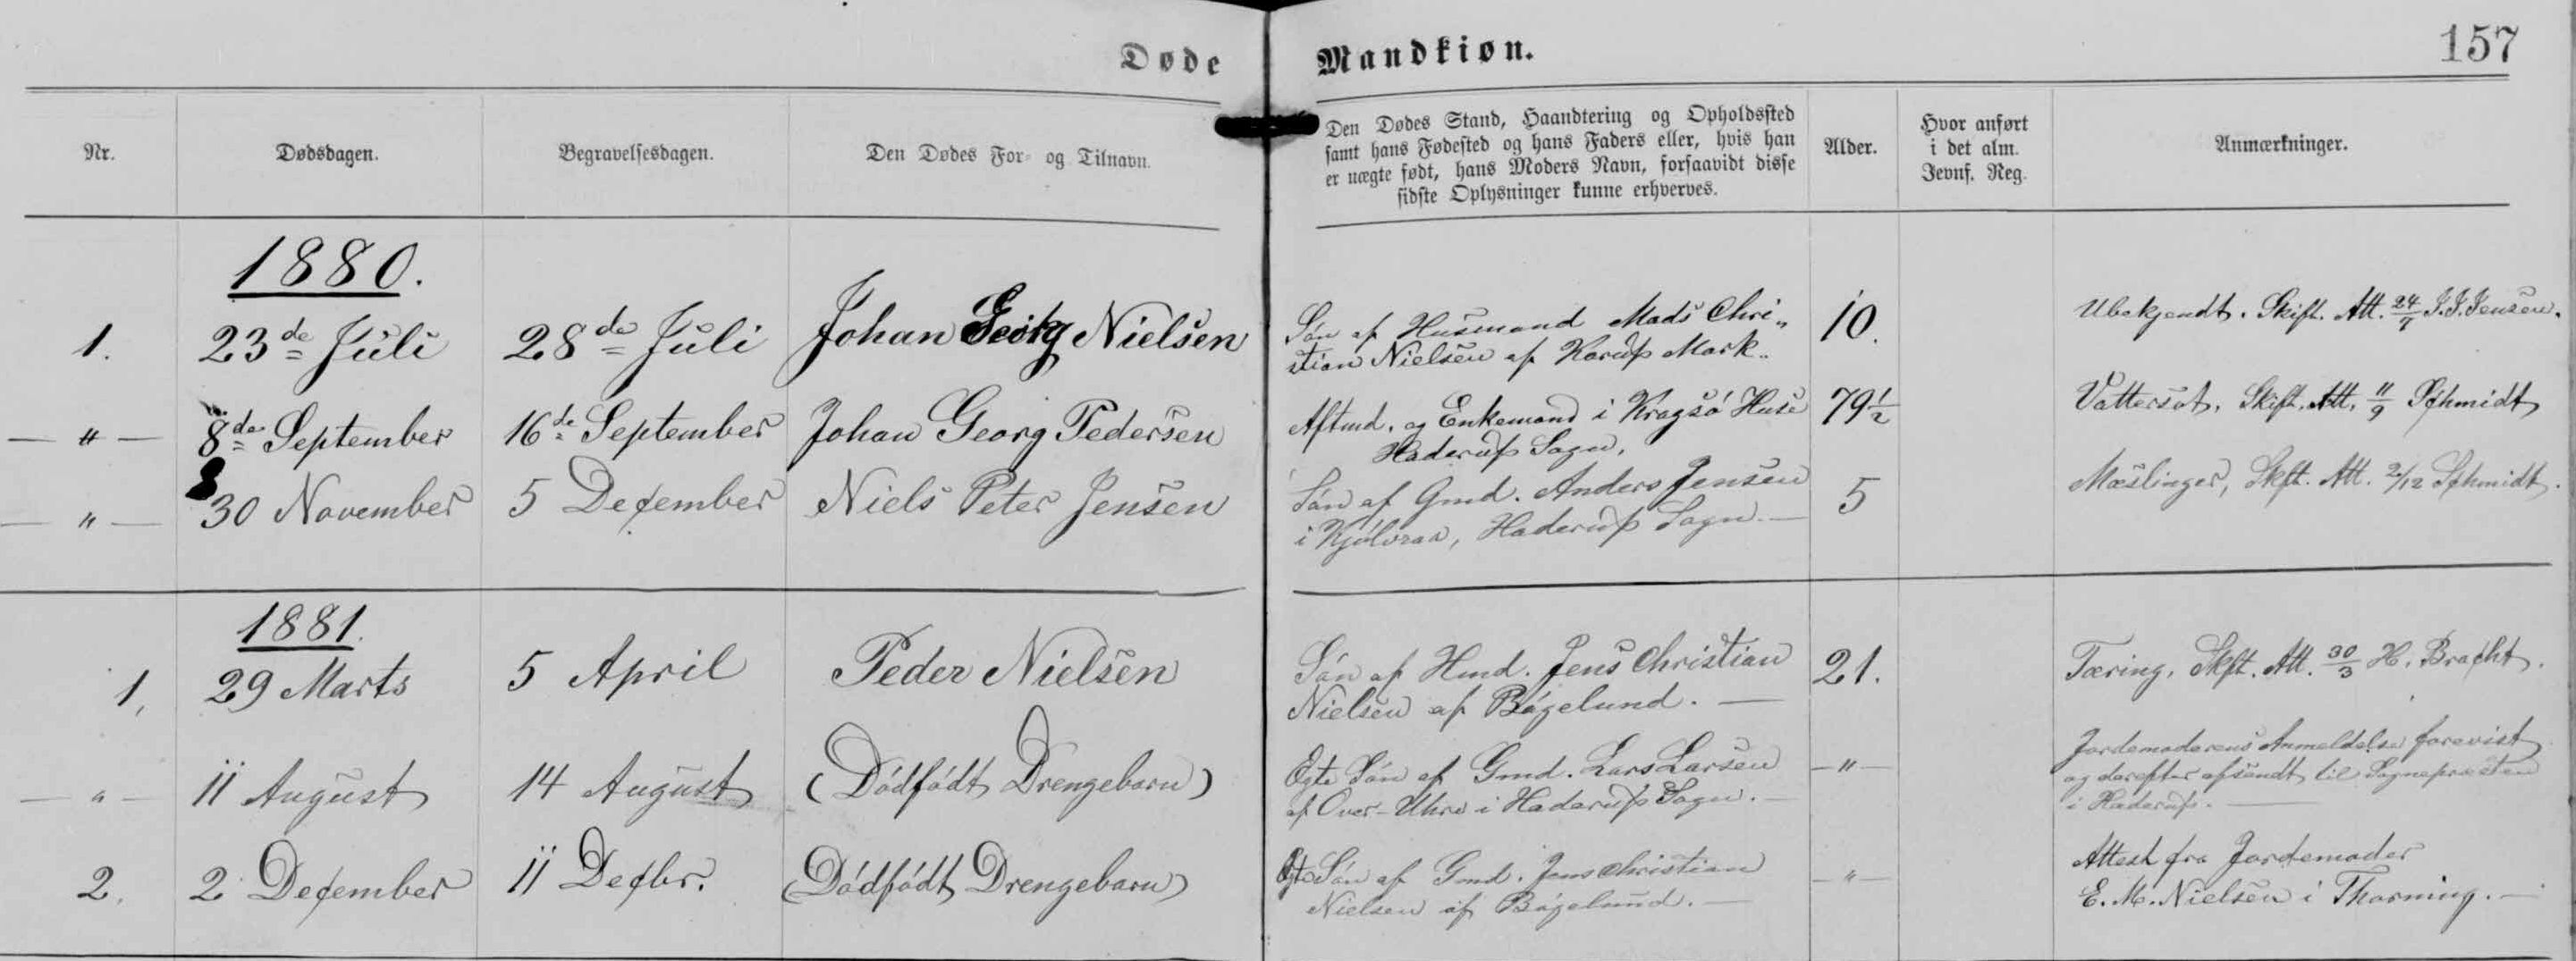 Døde Mandkiøn.
157
Nr.
Dødsdagen.
Begravelsesdagen.
Den Dødes For- og Tilnavn.
Den Dødes Stand, Haandtering og Opholdssted
samt hans Fødested og hans Faders eller, hvis han
er uægte født, hans Moders Navn, forsaavidt disse
sidste Oplysninger kunne erhverves.
Alder.
Hvor anført
i det alm.
Jevnf. Reg.
Anmærkninger.
1880.
1.
23de Juli
28de Juli
Johan Georg Nielsen
Søn af Husmand Mads Chri„
stian Nielsen af Karup Mark„
10.
Ubekjendt. Skift. Att. 24/7 J. J. Jensen.
— " —
8de September
16de September
Johan Georg Pedersen
Aftmd. og Enkemand i Kragsø Huse
Haderup Sogn.
79 1/2
Vattersot, Skift. Att. 11/9 Schmidt
— " —
30 November
5 December
Niels Peter Jensen
Søn af Gmd. Anders Jensen
i Kjølvraa, Haderup Sogn. —
5
Mæslinger, Skft. Att. 2/12 Schmidt.
1881.
1,
29 Marts
5 April
Peder Nielsen
Søn af Hmd. Jens Christian
Nielsen af Bøgelund. —
21.
Tæring. Skft. Att. 30/3 H. Bracht.
— " —
11 August
14 August
(Dødfødt Drengebarn)
Egte Søn af Gmd. Lars Larsen
af Over-Uhre i Haderup Sogn. —
— " —
Jordemoderens Anmeldelse forevist
og derefter afsendt til Sognepræsten
i Haderup. —
2.
2 December
11 Decbr.
(Dødfødt Drengebarn)
Egte Søn af Gmd. Jens Christian
Nielsen af Bøgelund. —
— " —
Attest fra Jordemoder
E. M. Nielsen i Thorning. —